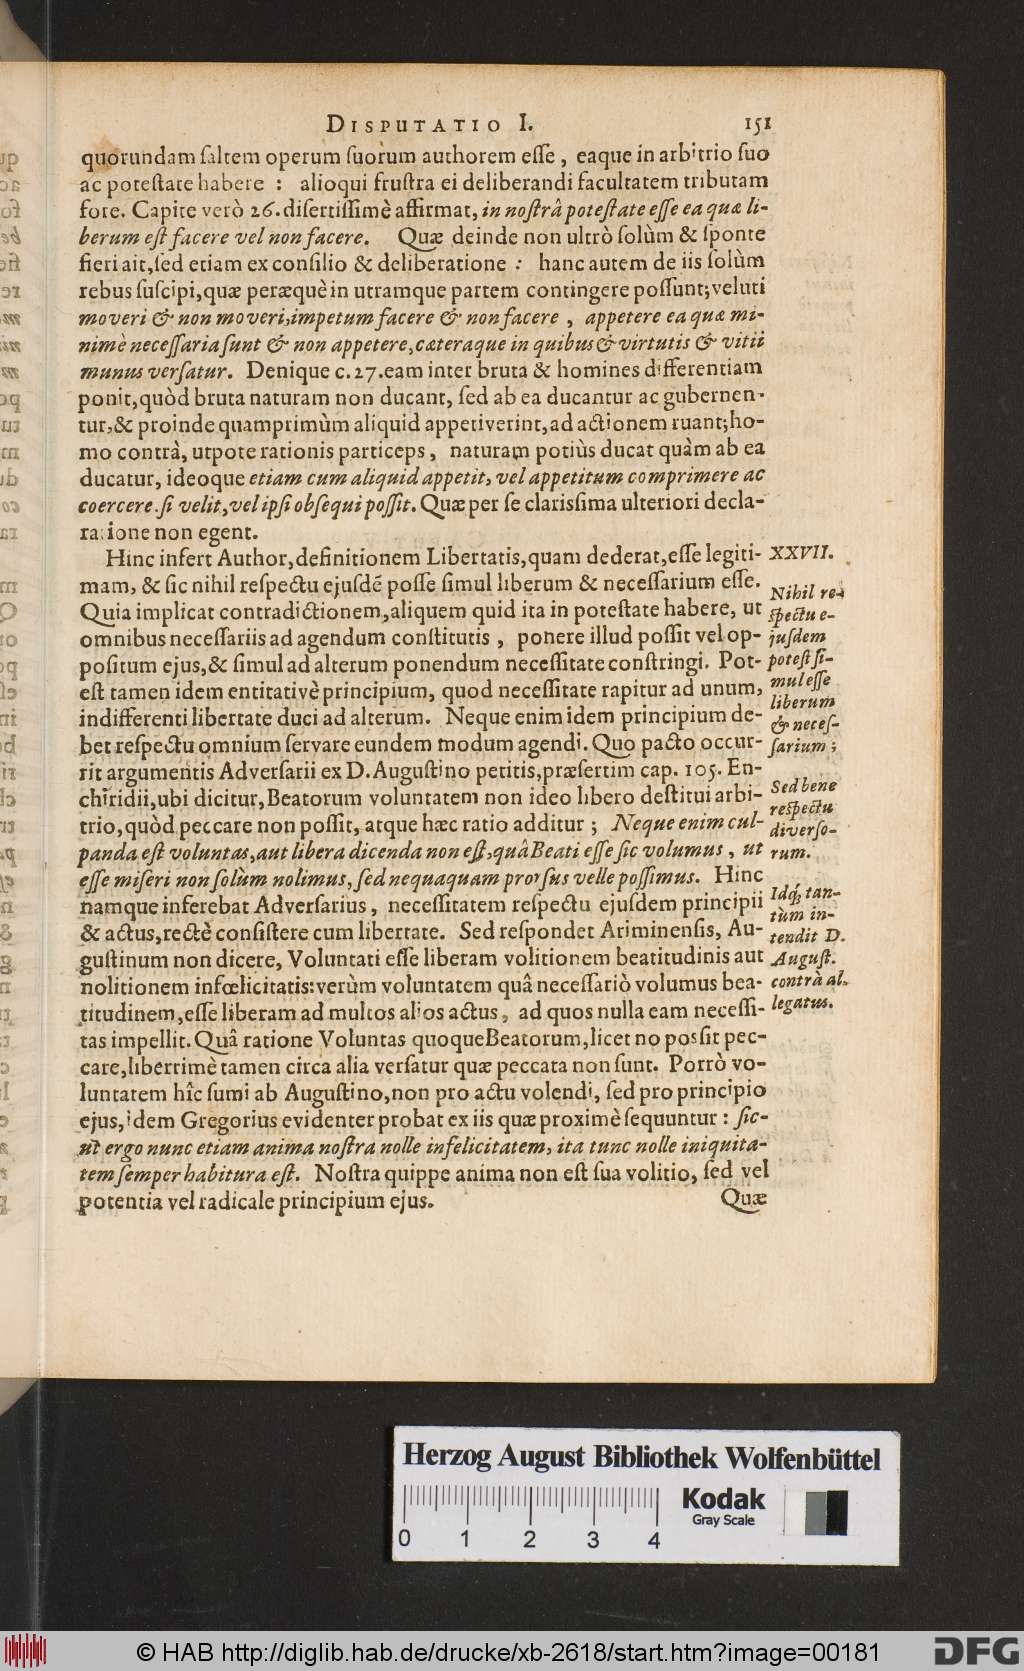 DISPUTATIO I. 151
quorundam saltem operum suorum authorem esse, eaque in arbitrio suo
ac potestate habere : alioqui frustra ei deliberandi facultatem tributam
fore. Capite verò 26. disertissimè affirmat, in nostrâ potestate esse ea quæ li-
berum est facere vel non facere. Quæ deinde non ultrò solùm & sponte
fieri ait, sed etiam ex consilio & deliberatione : hanc autem de iis solùm
rebus suscipi, quæ peræquè in utramque partem contingere possunt; veluti
moveri & non moveri, impetum facere & non facere, appetere ea quæ mi-
nimè necessaria sunt & non appetere, cæteraque in quibus & virtutis & vitii
munus versatur. Denique c. 27. eam inter bruta & homines differentiam
ponit, quòd bruta naturam non ducant, sed ab ea ducantur ac gubernen-
tur, & proinde quamprimùm aliquid appetiverint, ad actionem ruant; ho-
mo contrà, utpote rationis particeps, naturam potiùs ducat quàm ab ea
ducatur, ideoque etiam cum aliquid appetit, vel appetitum comprimere ac
coercere si velit, vel ipsi obsequi possit. Quæ per se clarissima ulteriori decla-
ratione non egent.
Hinc infert Author, definitionem Libertatis, quam dederat, esse legiti-
mam, & sic nihil respectu ejusdẽ posse simul liberum & necessarium esse.
Quia implicat contradictionem, aliquem quid ita in potestate habere, ut
omnibus necessariis ad agendum constitutis, ponere illud possit vel op-
positum ejus, & simul ad alterum ponendum necessitate constringi. Pot-
est tamen idem entitativè principium, quod necessitate rapitur ad unum,
indifferenti libertate duci ad alterum. Neque enim idem principium de-
bet respectu omnium servare eundem modum agendi. Quo pacto occur-
rit argumentis Adversarii ex D. Augustino petitis, præsertim cap. 105. En-
chiridii, ubi dicitur, Beatorum voluntatem non ideo libero destitui arbi-
trio, quòd peccare non possit, atque hæc ratio additur ; Neque enim cul-
panda est voluntas, aut libera dicenda non est, quâ Beati esse sic volumus, ut
esse miseri non solùm nolimus, sed nequaquam prorsus velle possimus. Hinc
namque inferebat Adversarius, necessitatem respectu ejusdem principii
& actus, rectè consistere cum libertate. Sed respondet Ariminensis, Au-
gustinum non dicere, Voluntati esse liberam volitionem beatitudinis aut
nolitionem infœlicitatis: verùm voluntatem quâ necessariò volumus bea-
titudinem, esse liberam ad multos alios actus, ad quos nulla eam necessi-
tas impellit. Quâ ratione Voluntas quoque Beatorum, licet no possit pec-
care, liberrimè tamen circa alia versatur quæ peccata non sunt. Porrò vo-
luntatem hîc sumi ab Augustino, non pro actu volendi, sed pro principio
ejus, idem Gregorius evidenter probat ex iis quæ proximè sequuntur : sic-
ut ergo nunc etiam anima nostra nolle infelicitatem, ita tunc nolle iniquita-
tem semper habitura est. Nostra quippe anima non est sua volitio, sed vel
potentia vel radicale principium ejus.
Quæ
XXVII.
Nihil re-
spectu e-
jusdem
potest si-
mul esse
liberum
& neces-
sarium ;
Sed bene
respectu
diverso-
rum.
Idq́, tan-
tùm in-
tendit D.
August.
contrà al-
legatus.
Herzog August Bibliothek Wolfenbüttel
Kodak
Gray Scale
0 1 2 3 4
© HAB http://diglib.hab.de/drucke/xb-2618/start.htm?image=00181
DFG